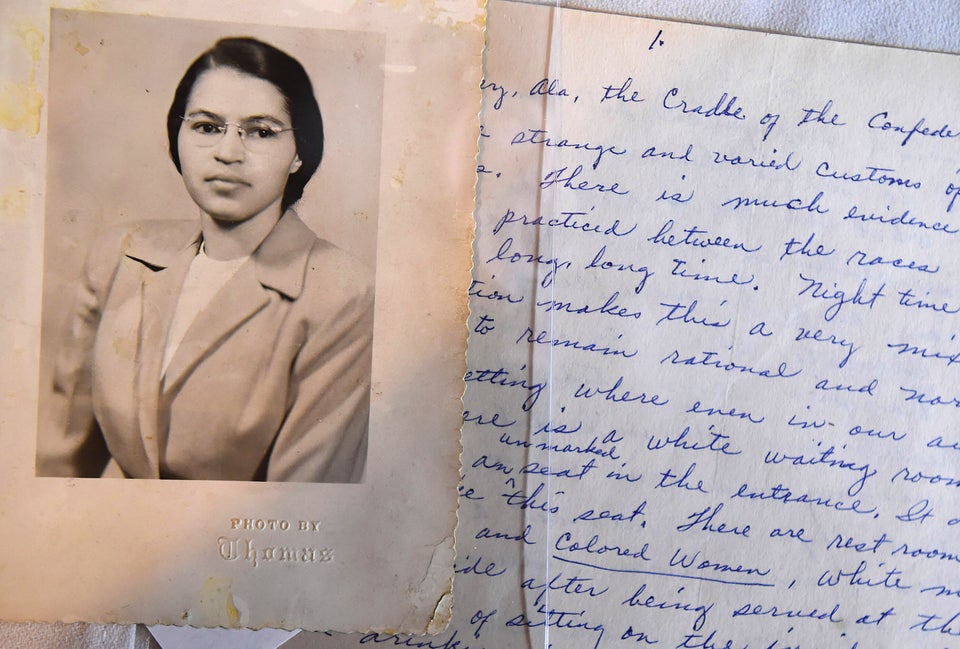 PHOTO BY
Thomas
1.
Ala, the Cradle of the Confede
strange and varied customs of
There is much evidence
practiced between the races
long, long time. Night time
tion makes this a very mix
to remain rational and nor
etting where even in our
ere is a white waiting room
unmarked
an seat in the entrance. It
this seat. There are rest room
and Colored Women, white m
ide after being served at the
of sitting on the
drink